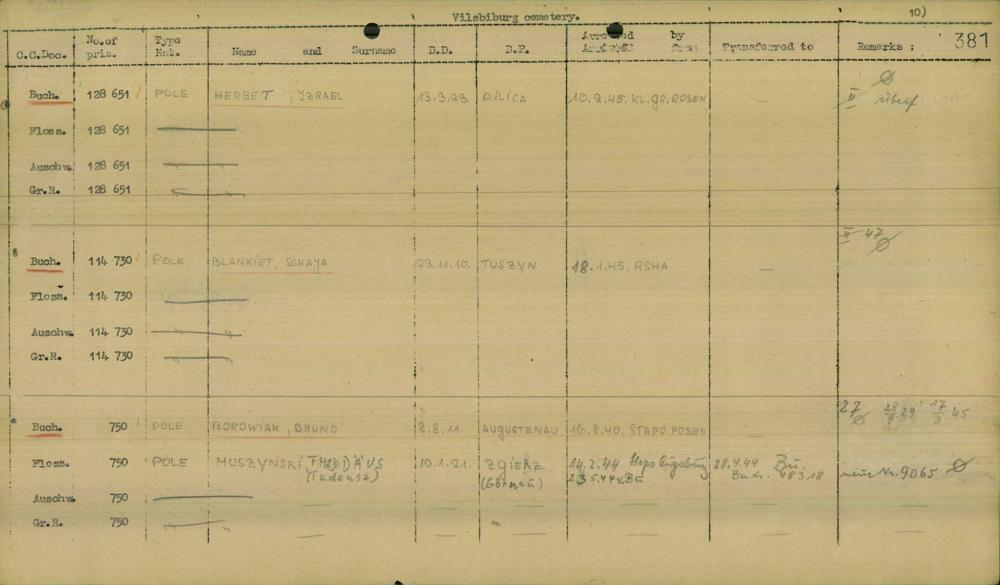 Vilsbiburg cemetery.
10)
C.C.Doc. No. of pris. Type Nat. Name and Surname B.D. B.P. by Transferred to Remarks : 381
Buch. 128 651 POLE HERBET, IZRAEL 13.3.23. PILICA 10.2.45. KL.GR.ROSEN — II
Floss. 128 651
Auschw. 128 651 " "
Gr.R. 128 651 " "
II 47
Buch. 114 730 POLE BLANKIET, SCHAYA 23.11.10. TUSZYN 18.1.45. RSHA —
Floss. 114 730
Auschw. 114 730 " "
Gr.R. 114 730 " "
27
Buch. 750 POLE BOROWIAK, BRUNO 2.8.11. AUGUSTENAU 16.8.40. STAPO POSEN —
Floss. 750 POLE MUSZYNSKI, THADDÄUS 10.1.21. ZGIERZ 14.2.44 Stapo Augsburg 28.4.44 Bu. neue Nr. 9065
(Tadeusz) (Görnau) 48318
Auschw. 750
Gr.R. 750 "